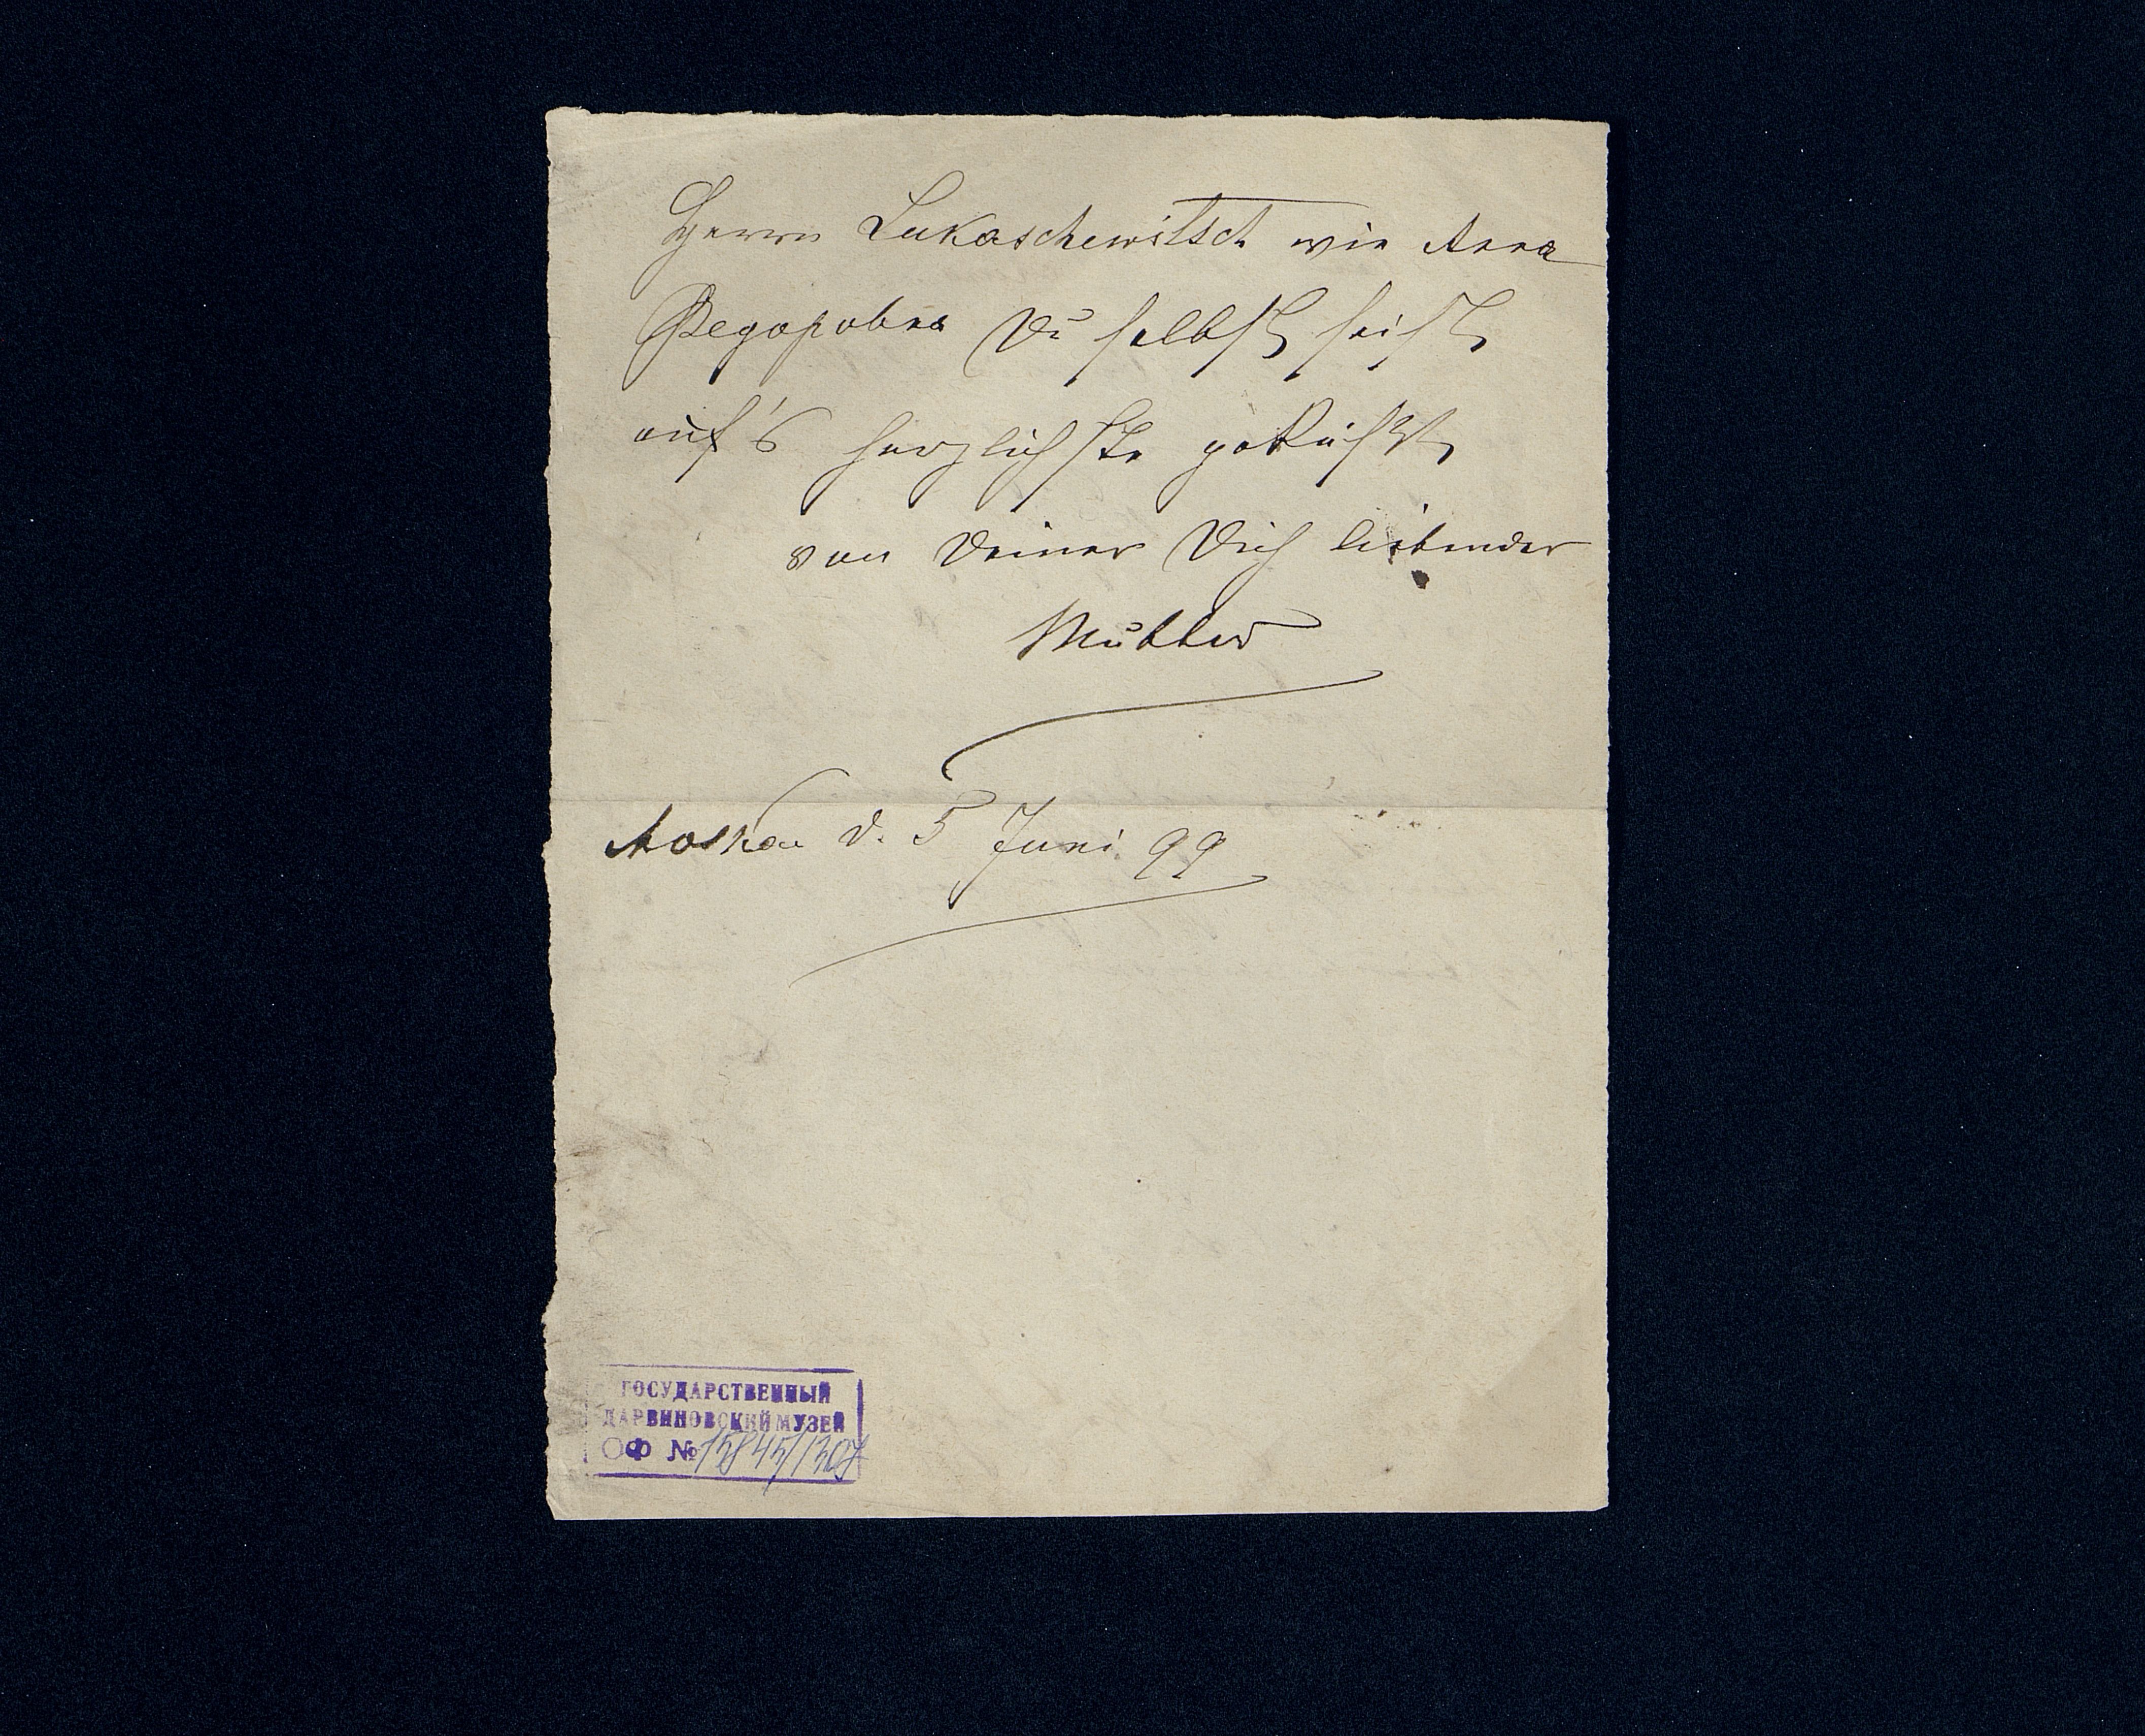 Herrn Lukaschewitsch wie Anna
Федоровна Du selbst seist
auf's herzlichste geküßt
von Deiner Dich liebender
Mutter
Moskau d. 5 Juni 99
ГОСУДАРСТВЕННЫЙ
ДАРВИНОВСКИЙ МУЗЕЙ
ОФ №